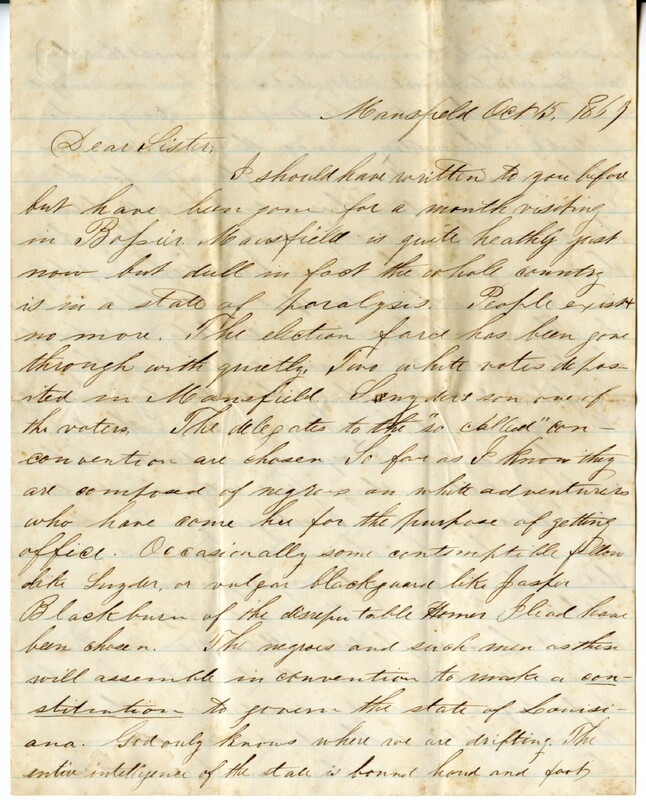 Mansfield Oct 15, 1867
Dear Sister,
I should have written to you before
but have been gone for a month visiting
in Bossier. Mansfield is quite healthy just
now but dull in fact the whole country
is in a state of paralysis. People exist
no more. The election farce has been gone
through with quietly. Two white votes depos-
ited in Mansfield. Snyders son one of
the voters. The delegates to the "so called" con-
convention are chosen So far as I know they
are composed of negroes or white adventurers
who have come here for the purpose of getting
office. Occasionally some contemptable fellow
like Snyder, or vulgar blackguard like Jasper
Blackburn of the disreputable Homer Iliad have
been chosen. The negroes and such men as these
will assemble in convention to make a con-
stitution to govern the state of Louisi-
ana. God only knows where we are drifting. The
entire intelligence of the state is bound hand and foot,